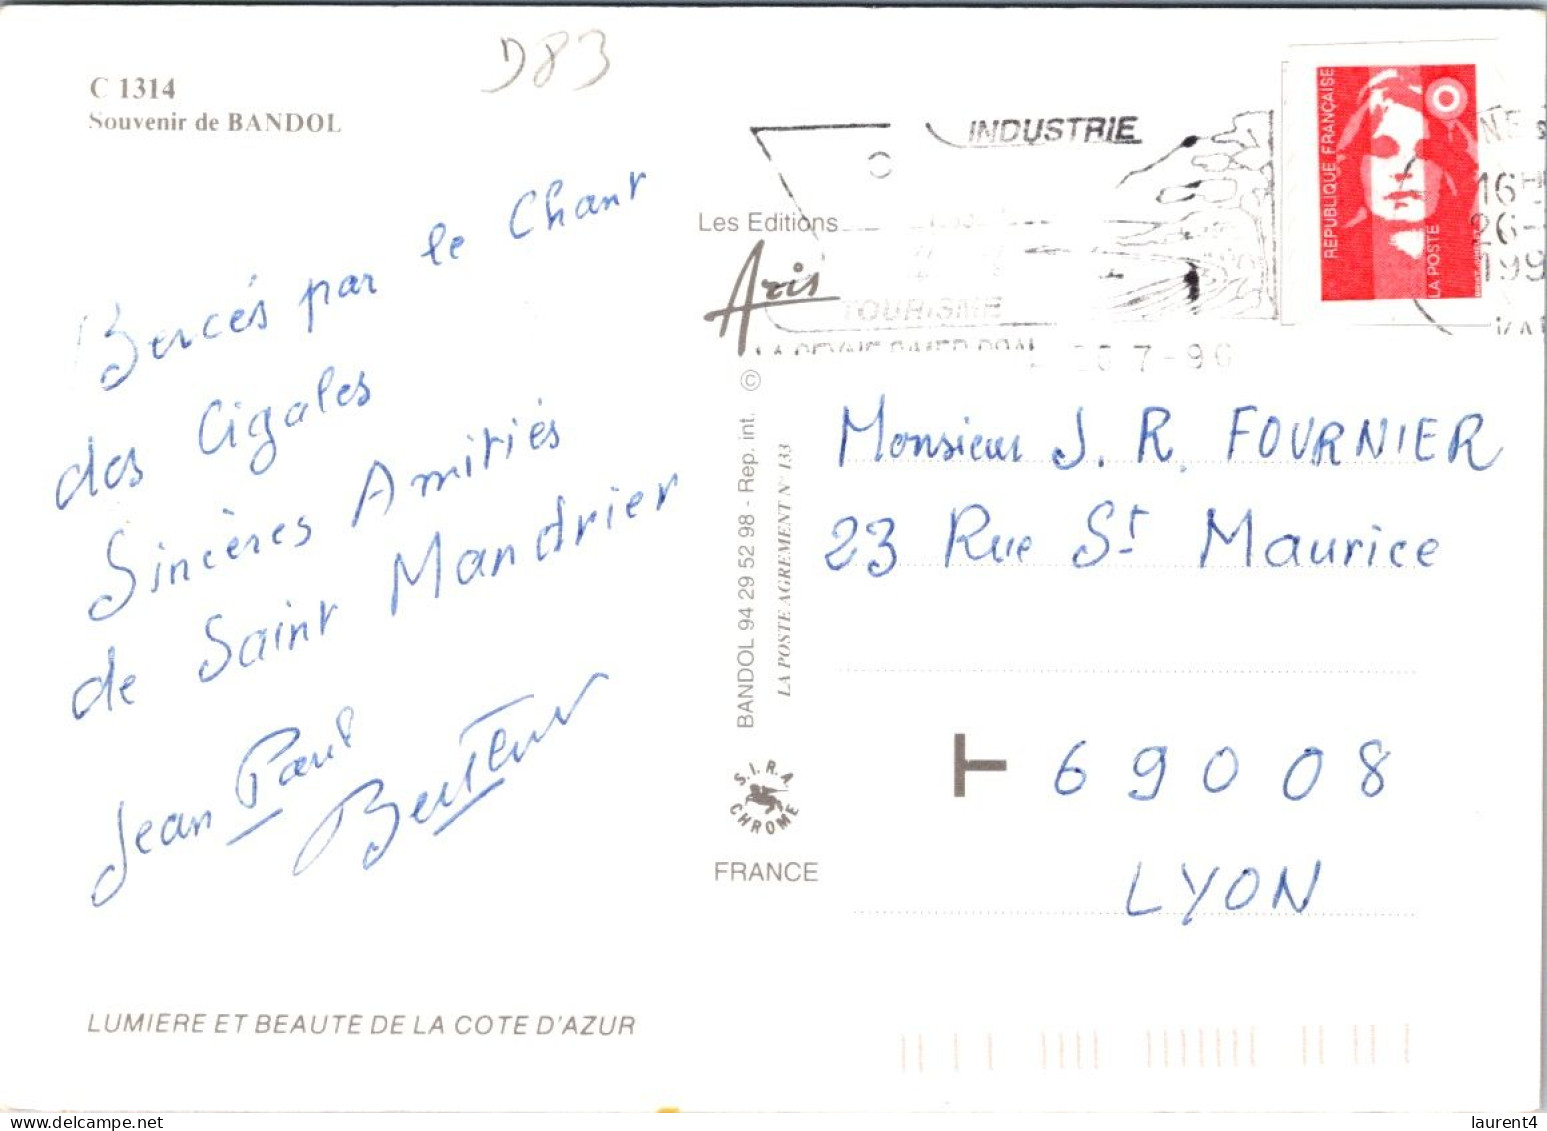 D83
C 1314
Souvenir de BANDOL
Bercés par le Chant
des Cigales
Sincères Amitiés
de Saint Mandrier
Jean Paul
LUMIERE ET BEAUTE DE LA COTE D'AZUR
Les Editions
Aris
BANDOL 94 29 52 98 - Rep. int. ©
LA POSTE AGREMENT N° 133
S.I.R.A.
CHROME
FRANCE
INDUSTRIE
TOURISME
26 7-96
REPUBLIQUE FRANÇAISE
LA POSTE
16H
26-
199
Monsieur J. R. FOURNIER
23 Rue St Maurice
T 69008
LYON
laurent4